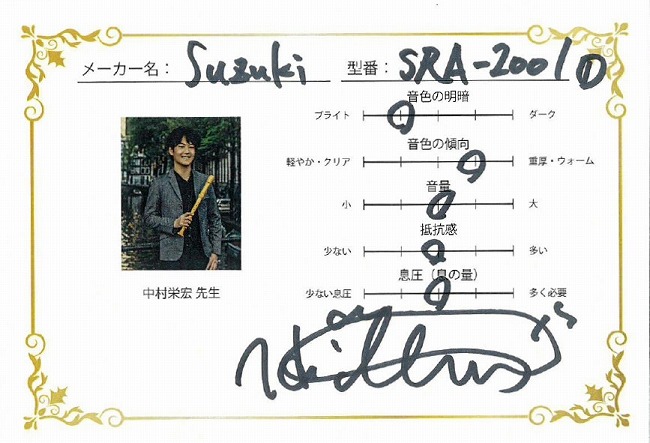 メーカー名： Suzuki 型番： SRA-200/①
音色の明暗
ブライト ダーク
音色の傾向
軽やか・クリア 重厚・ウォーム
音量
小 大
抵抗感
少ない 多い
息圧（息の量）
少ない息圧 多く必要
中村栄宏 先生